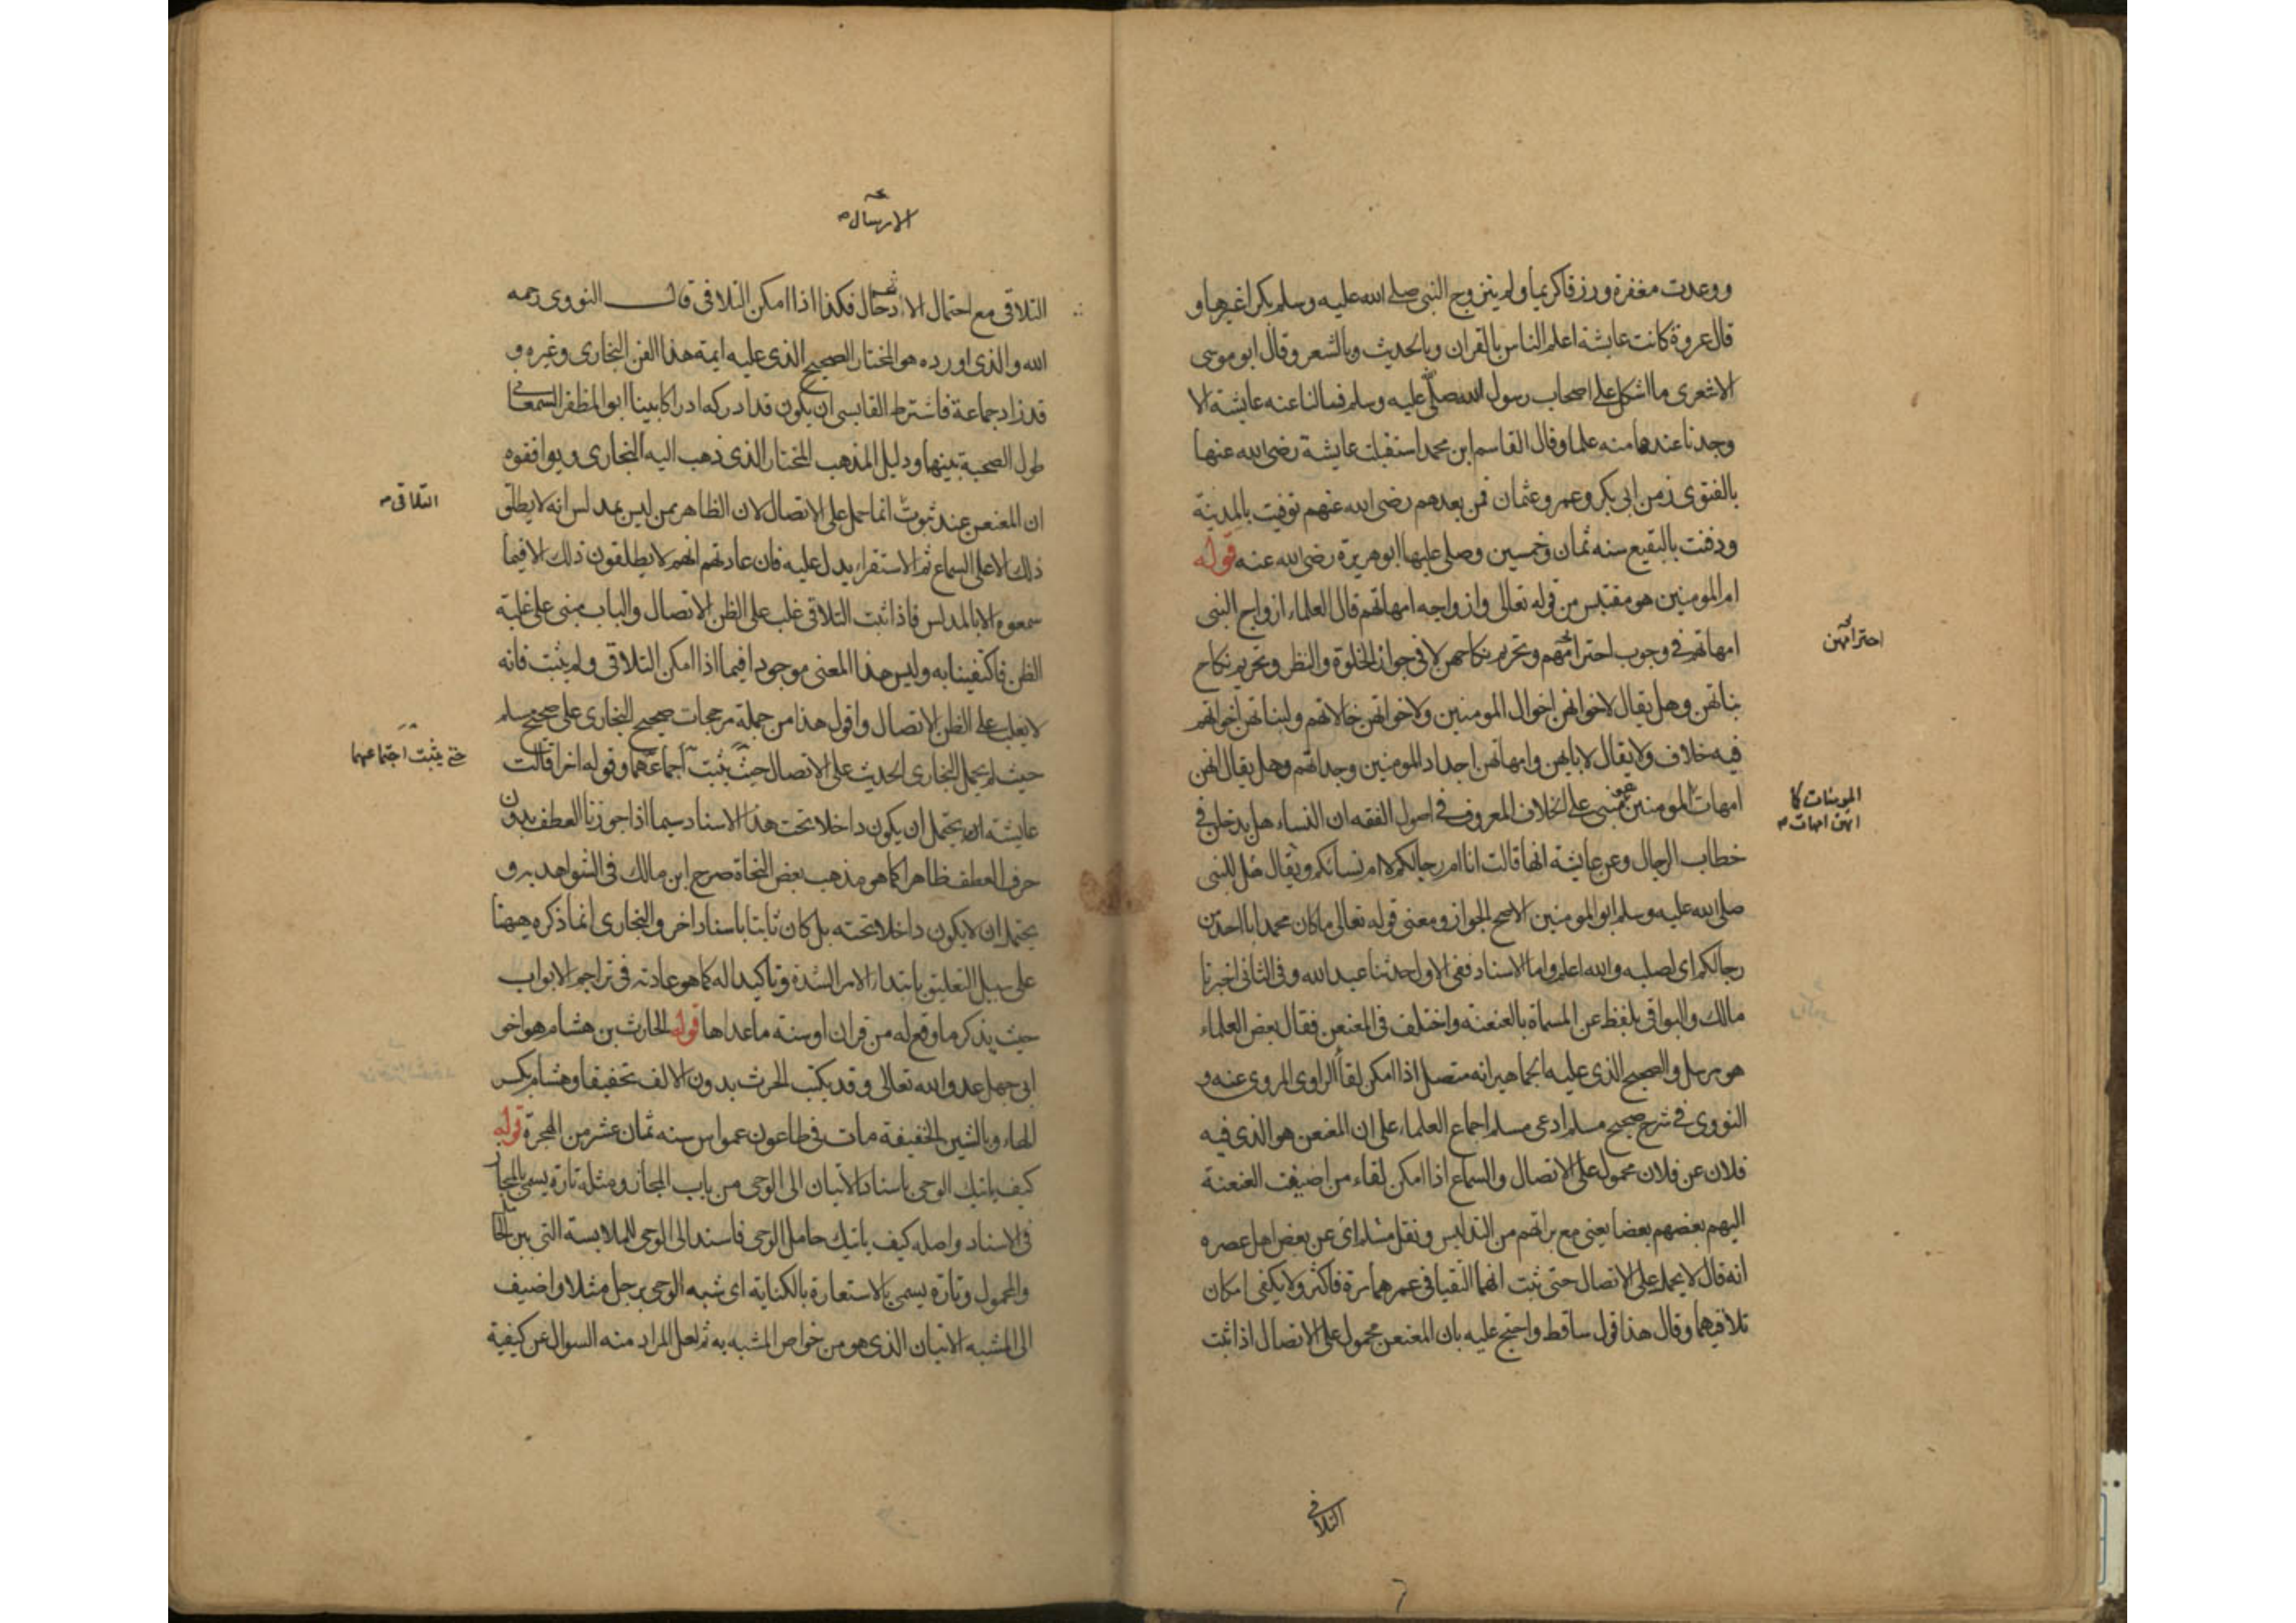 ووعدت مغفرة ورزقا كريما ولم يتزوج النبي صلى الله عليه وسلم بكرا غيرها و
قال عروة كانت عايشة اعلم الناس بالقران وبالحديث وبالشعر وقال ابو موسى
الاشعرى ما اشكل على اصحاب رسول الله صلى عليه وسلم فسالنا عنه عايشة الا
وجدنا عندها منه علما وقال القاسم ابن محمد استقبلت عايشة رضى الله عنها
بالفتوى زمن ابى بكر وعمر وعثمان فمن بعدهم رضى الله عنهم توفيت بالمدينة
ودفنت بالبقيع سنه ثمان وخمسين وصلى عليها ابو هريرة رضى الله عنه قوله
ام المومنين هو مقتبس من قوله تعالى وازواجه امهاتهم قال العلماء ازواج النبى
امهاتهم فى وجوب احترامهم وتحريم نكاحهن لا فى جواز الخلوة والنظر وتحريم نكاح
احترامهن
بناتهن وهل يقال لاخوانهن اخوال المومنين ولاخواتهن خالاتهم ولبناتهن اخواتهم
فيه خلاف ولا يقال لابايهن وامهاتهن اجداد المومنين وجداتهم وهل يقال لهن
امهات المومنين مبنى على الخلاف المعروف فى اصول الفقه ان النساء هل يدخلن فى
المومنات كا
انهن امهات
خطاب الرجال وعن عايشة انها قالت انا ام رجالكم لا ام نسائكم ويقال هل للنبى
صلى الله عليه وسلم ابو المومنين الاصح الجواز ومعنى قوله تعالى ما كان محمد ابا احد من
رجالكم اى لصلبه والله اعلم واما الاسناد ففى الاول حدثنا عبد الله وفى الثانى اخبرنا
مالك والبواقى بلفظ عن المسماة بالعنعنه واختلف فى المعنعن فقال بعض العلماء
هو مرسل والصحيح الذى عليه الجماهير انه متصل اذا امكن لقاء الراوى المروى عنه و
النووى فى شرح صحيح مسلم ادعى مسلم اجماع العلماء على ان المعنعن هو الذى فيه
فلان عن فلان محمول على الاتصال والسماع اذا امكن لقاء من اضيفت العنعنة
اليهم بعضهم بعضا يعنى مع براتهم من التدليس ونقل مسلم اى عن بعض اهل عصره
انه قال لا يحمل على الاتصال حتى ثبت انهما التقيا فى عمرهما مرة فاكثر ولا يكفى امكان
تلاقيهما وقال هذا قول ساقط واحتج عليه بان المعنعن محمول على الاتصال اذا ثبت
التلاقى
الارسال
التلاقى مع احتمال الا فكذا اذا امكن التلاقى قال النووى رحمه
الله والذى اورده هو المختار الصحيح الذى عليه ايمة هذا الفن البخارى وغيره و
قد زاد جماعة فاشترط القابسى ان يكون قد ادركه ادراكا بينا ابو المظفر السمعانى
طول الصحبة بينهما ودليل المذهب المختار الذى ذهب اليه البخارى ويوافقوه
ان المعنعن عند ثبوت انما حمل على الاتصال لان الظاهر ممن ليس بمدلس انه لا يطلق
التلاقى
ذلك الا على السماع ثم الاستقراء يدل عليه فان عادتهم انهم لا يطلقون ذلك الا فيما
سمعوه الا بالمدلس فاذا ثبت التلاقى غلب على الظن الاتصال والباب مبنى على غلبة
الظن فاكتفينا به وليس هذا المعنى موجودا فيما اذا امكن التلاقى ولم يثبت فانه
لا يغلب على الظن الاتصال واقول هذا من جملة مرجحات صحيح البخارى على صحيح مسلم
حيث لم يحمل البخارى الحديث على الاتصال حيث يثبت اجماعهما وقوله اخرا قالت
حتى يثبت اجتماعهما
عايشة انه يحتمل ان يكون داخلا تحت هذا الاسناد سيما اذا جوزنا العطف بدون
حرف العطف ظاهرا كما هو مذهب بعض النحاة صرح ابن مالك فى الشواهد به و
يحتمل ان لا يكون داخلا تحته بل كان ثابتا باسناد اخر والبخارى انما ذكره ههنا
على سبيل التعليق بابتداء الامر الشدة وتاكيدا له كما هو عادته فى تراجم الابواب
حيث يذكر ما وقع له من قران او سنة ماعداها قوله الحارث بن هشام هو اخو
ابى جهل عدو الله تعالى وقد يكتب الحرث بدون الالف تخفيفا وهشام بكسر
الهاء وبالشين الخفيفة مات فى طاعون عمواس سنه ثمان عشر من الهجرة قوله
كيف ياتيك الوحى باسناد الاتيان الى الوحى من باب المجاز ومثله تارة يسمى بالمجاز
فى الاسناد واصله كيف ياتيك حامل الوحى فاسند الى الوحى للملابسة التى بين الحامل
والمحمول وتارة يسمى بالاستعارة بالكناية اى شبه الوحى برجل مثلا واضيف
الى المشبه الاتيان الذى هو من خواص المشبه به ثم لعل المراد منه السوال عن كيفية